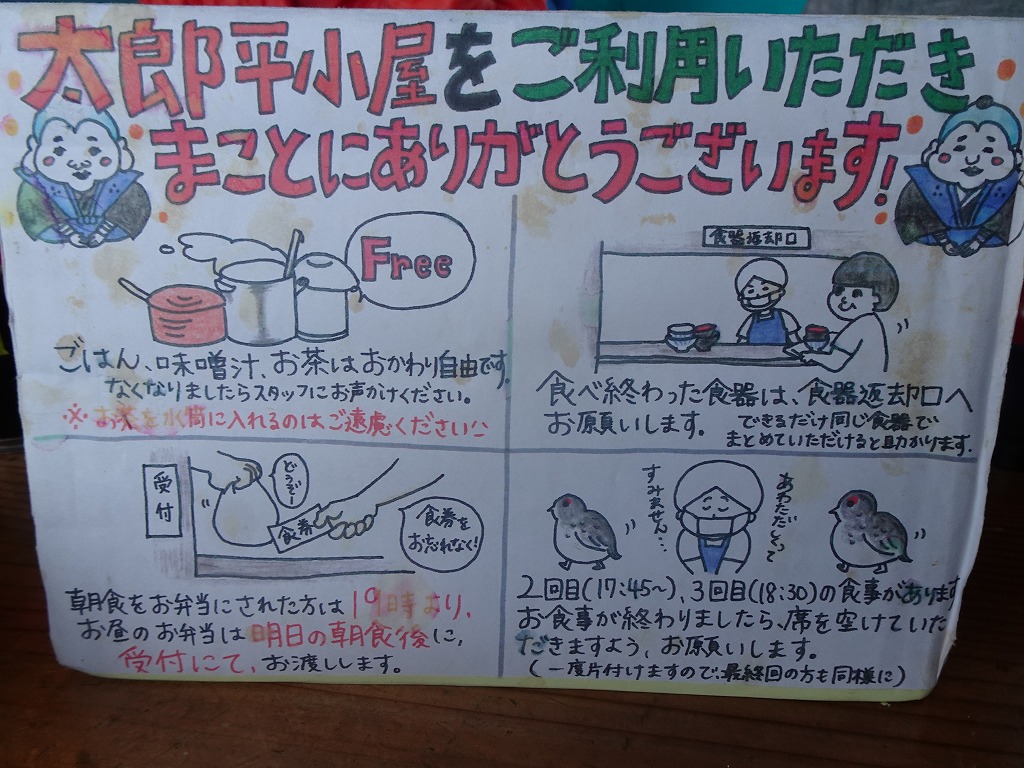 太郎平小屋をご利用いただき
まことにありがとうございます!
Free
ごはん、味噌汁、お茶はおかわり自由です。
なくなりましたらスタッフにお声かけください。
※お茶を水筒に入れるのはご遠慮ください
食器返却口
食べ終わった食器は、食器返却口へ
お願いします。
できるだけ同じ食器で
まとめていただけると助かります。
受付
どうぞー
食券
食券を
お忘れなく!
朝食をお弁当にされた方は19時より、
お昼のお弁当は明日の朝食後に、
受付にて、お渡しします。
あわただしくって
すみません…
2回目(17:45〜)、3回目(18:30)の食事があります
お食事が終わりましたら、席を空けていた
だきますよう、お願いします。
(一度片付けますので、最終回の方も同様に)